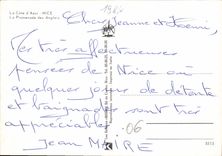 La Côte d'Azur - NICE
La Promenade des Anglais
Chers Jeanne et
Très affectueuses
pensées de Nice où
quelques jours de détente
et baignades sont très
appréciables.
06
Jean